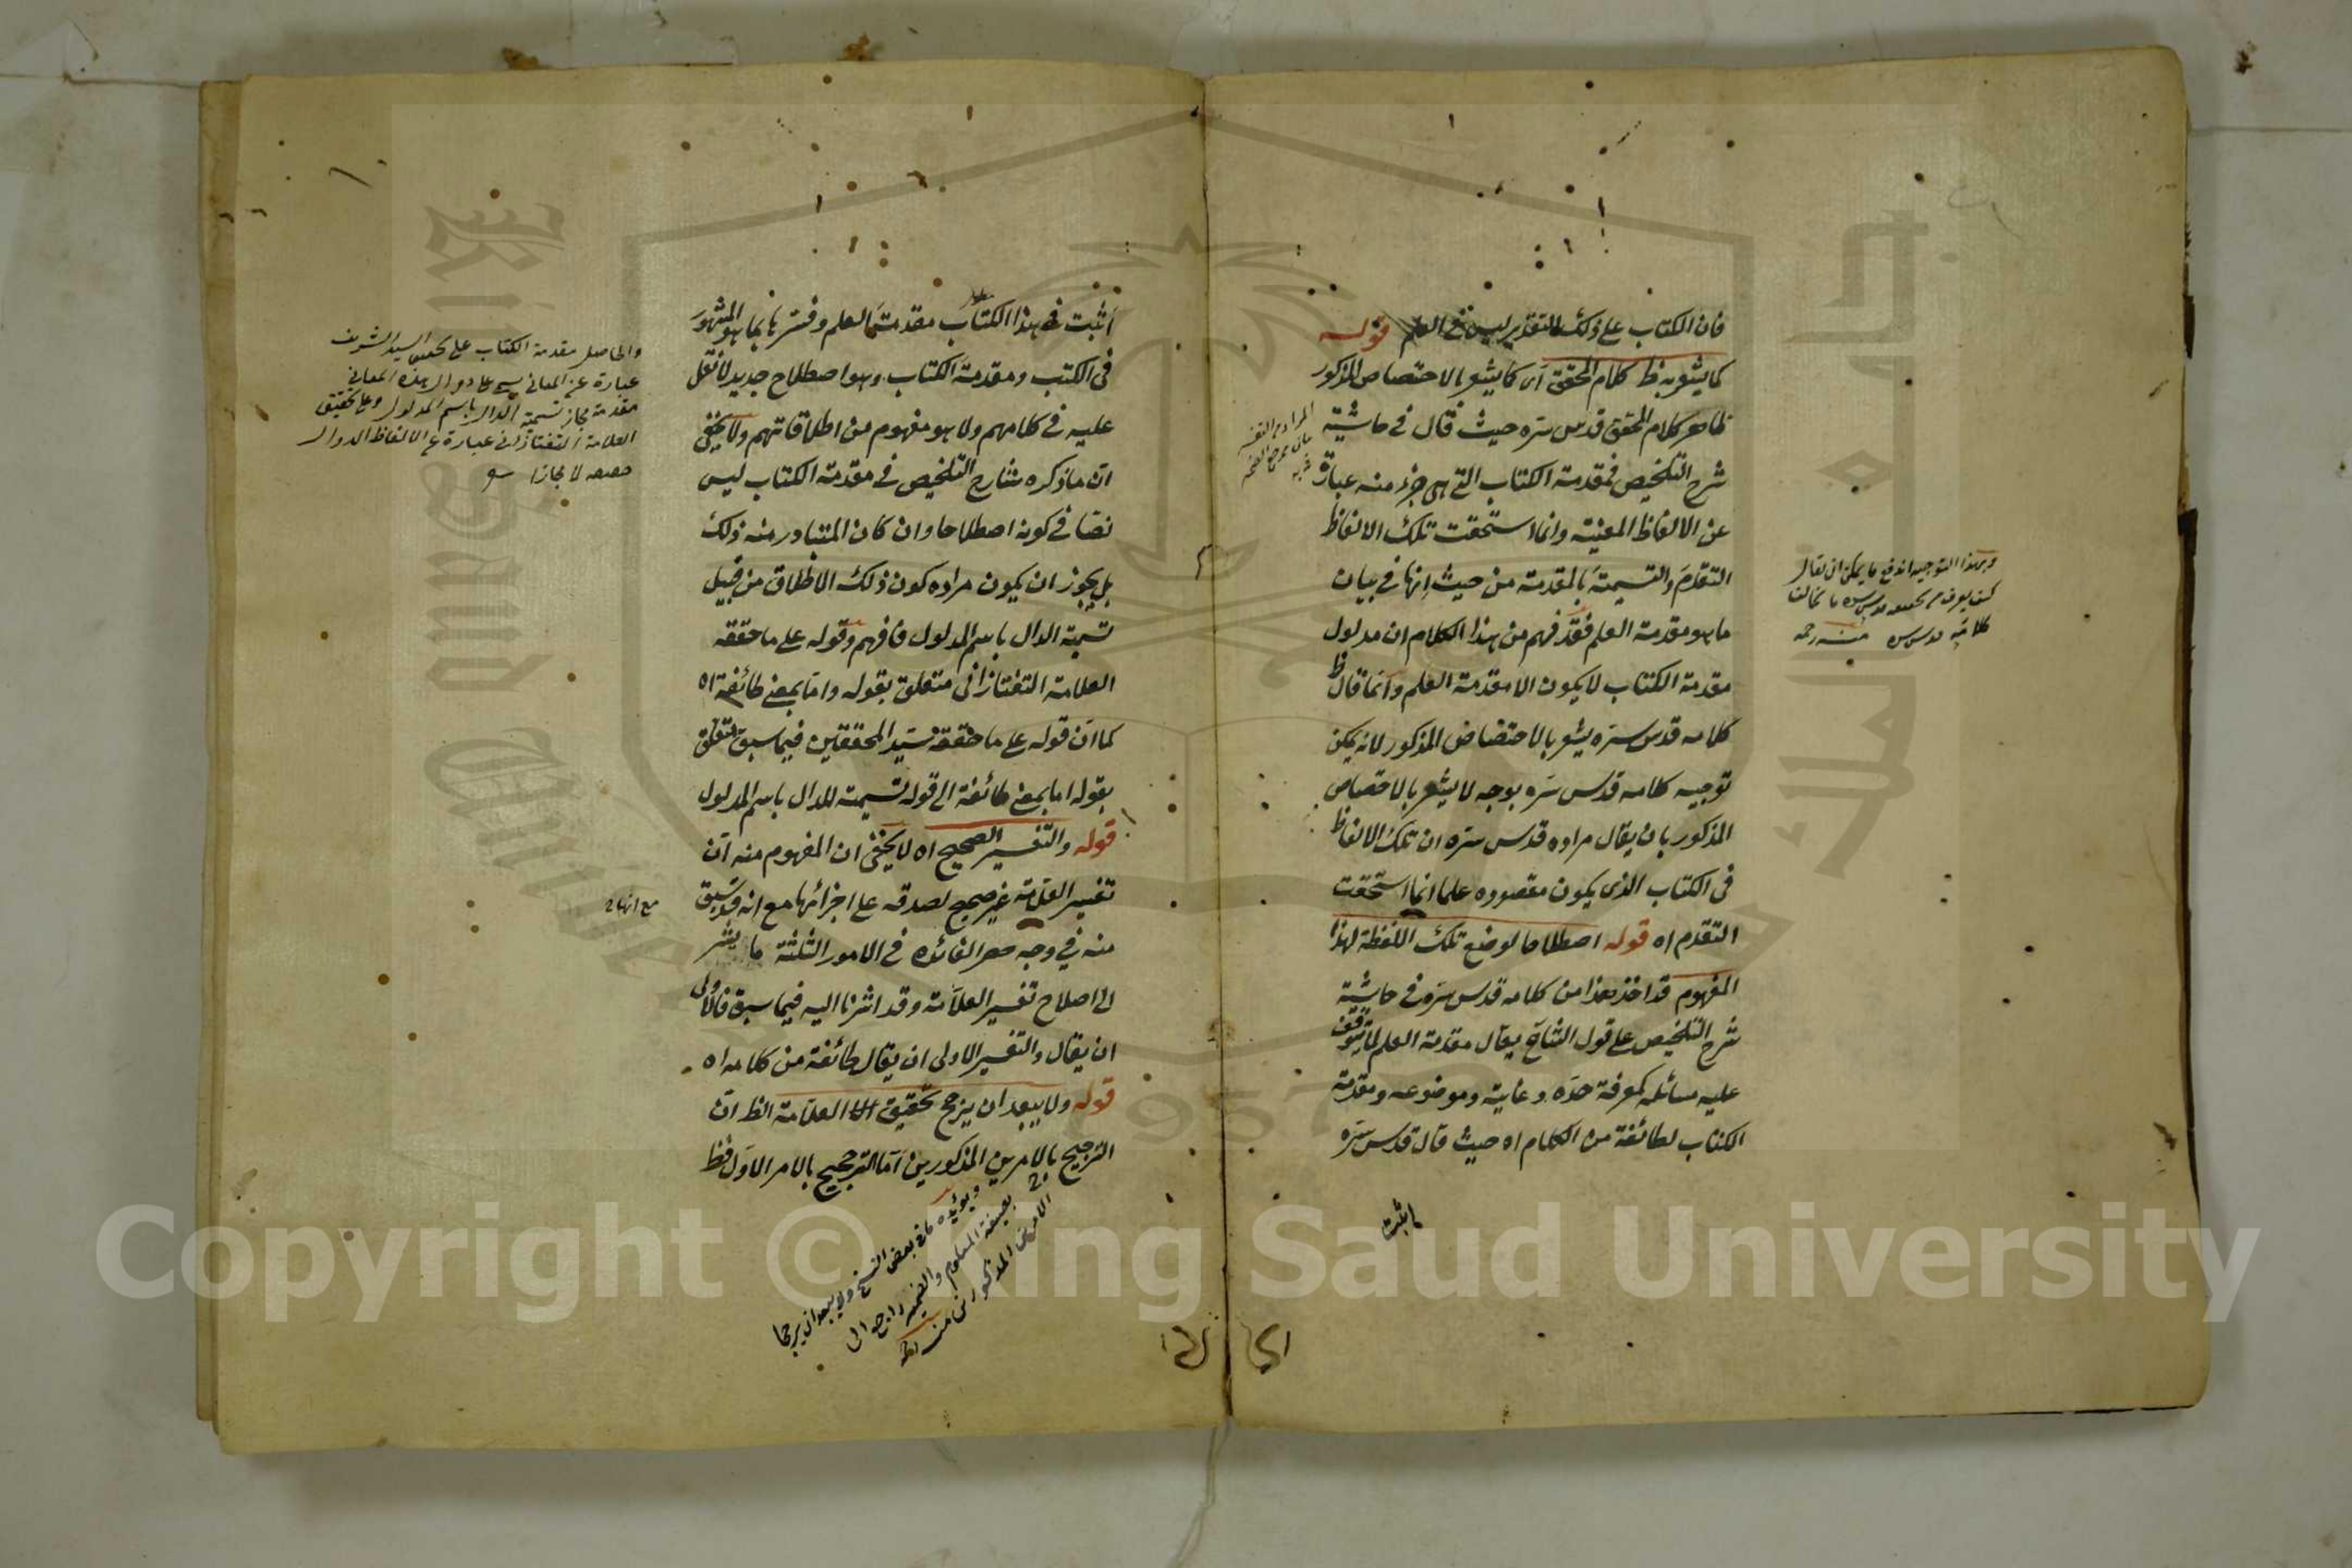 فان الكتاب على ذلك التقدير ليس في العلم قوله
كما يشعر به ظ كلام المحقق اى كما يشعر بالاختصاص المذكور
ظاهر كلام المحقق قدس سره حيث قال في حاشية
شرح التلخيص فمقدمة الكتاب التى هى جزء منه عبارة
عن الالفاظ المعينة وانما استحقت تلك الالفاظ
التقدم والتسمية بالمقدمة من حيث انها في بيان
ما هو مقدمة العلم فقد فهم من هذا الكلام ان مدلول
مقدمة الكتاب لا يكون الا مقدمة العلم وانما قال ظ
كلامه قدس سره يشعر بالاختصاص المذكور لانه يمكن
توجيه كلامه قدس سره بوجه لا يشعر بالاختصاص
المذكور بان يقال مراده قدس سره ان تلك الالفاظ
في الكتاب الذى يكون مقصوده علما انما استحقت
التقدم اه قوله اصطلاحا لوضع تلك اللفظة لهذا
المفهوم قد اخذ هذا من كلامه قدس سره في حاشية
شرح التلخيص على قول الشارح يقال مقدمة العلم لما يتوقف
عليه مسائله كمعرفة حده وغايته وموضوعه ومقدمة
الكتاب لطائفة من الكلام اه حيث قال قدس سره
اثبت
وبهذا التوجيه اندفع ما يمكن ان يقال
كلامه قدس سره منه رحمه
اثبت في هذا الكتاب مقدمة العلم وفسرها بما هو المشهور
في الكتب ومقدمة الكتاب وهو اصطلاح جديد لا نقل
عليه في كلامهم ولا هو مفهوم من اطلاقاتهم ولا يخفى
ان ما ذكره شارح التلخيص في مقدمة الكتاب ليس
نصا في كونه اصطلاحا وان كان المتبادر منه ذلك
بل يجوز ان يكون مراده كون ذلك الاطلاق من قبيل
تسمية الدال باسم المدلول فافهم وقوله على ما حققه
العلامة التفتازانى متعلق بقوله واما بمعنى طائفة اه
كما ان قوله على ما حققه سيد المحققين فيما سبق متعلق
بقوله اما بمعنى طائفة الى قوله تسمية للدال باسم المدلول
قوله والتفسير الصحيح اه لا يخفى ان المفهوم منه ان
تفسير العلامة غير صحيح لصدقه على اجزائها مع انه قد سبق
منه في وجه حصر الفائدة في الامور الثلثة ما يشير
الى اصلاح تفسير العلامة وقد اشرنا اليه فيما سبق فالاولى
ان يقال والتفسير الاولى ان يقال طائفة من كلامه اه
قوله ولا يبعد ان يرجح تحقيق العلامة الظ ان
الترجيح بالامرين المذكورين اما الترجيح بالامر الاول فظ
والحاصل مقدمة الكتاب على تحقيق السيد الشريف
عبارة عن المعانى
مقدمة مجاز تسمية الدال باسم المدلول وعلى تحقيق
العلامة التفتازانى عبارة عن الالفاظ الدوال
حقيقة لا مجازا
ويؤيده ما في بعض النسخ ولا يبعد ان يرجحا
بصيغة المعلوم والضمير راجع الى
الامرين المذكورين منه
Copyright © King Saud University
King Saud University
1957